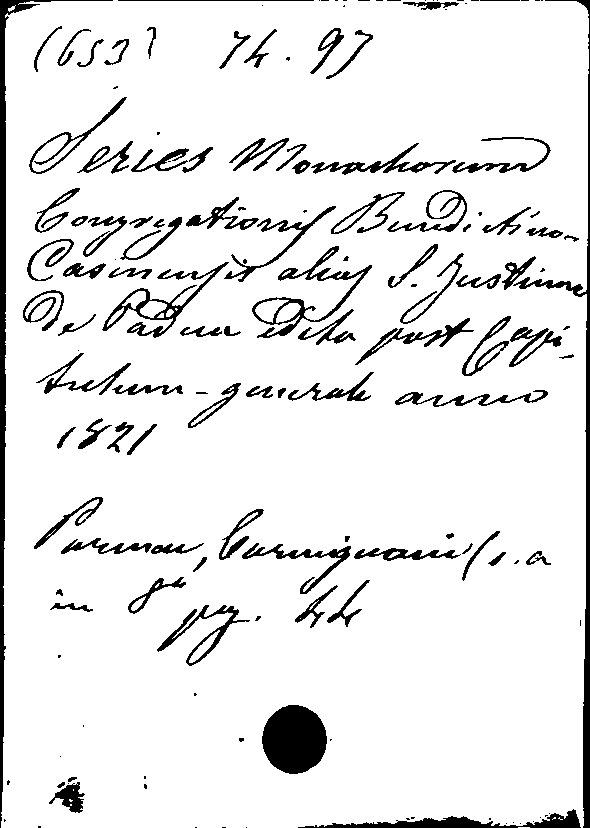 (653) 74.97
Series Monachorum
Congregationis Benedictino-
Casinensis alias S. Justinae
de Padua edita post Capi-
tulum-generale anno
1821
Parmae, Carmignani (s.a
in 8º
pag. 44